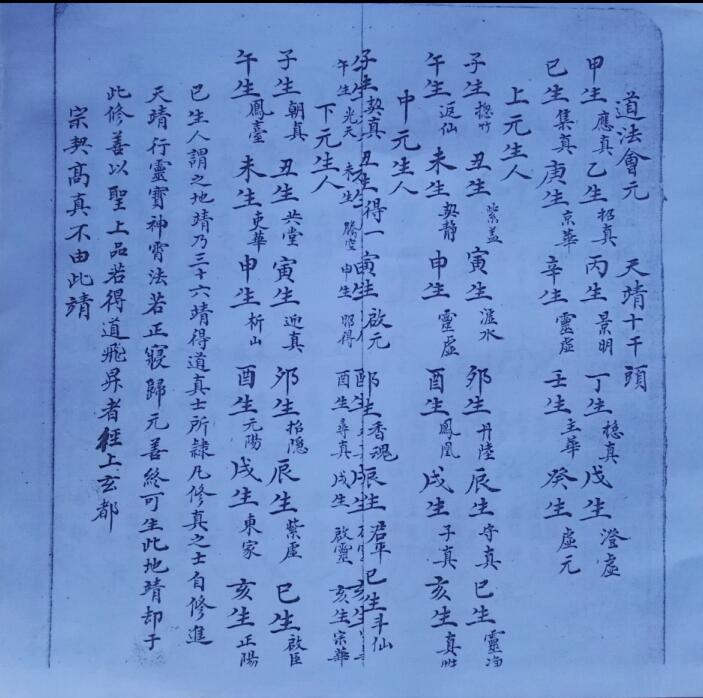 道法會元　　天靖十干頭
甲生應真乙生招真丙生景明丁生穏真戊生澄虛
己生集真庚生京華辛生靈虛壬生主華癸生虛元
上元生人
子生楤竹丑生紫盖寅生湓水夘生丹陸辰生守真巳生靈
午生返仙未生契靜申生靈虛酉生鳳凰戌生子真亥生真
中元生人
子生契真丑生得一寅生啟元生香魂辰生君平巳生斗仙
午生光天未生騰空申生酉生尋真戌生啟靈亥生宗華
下元生人
子生朝真丑生共堂寅生迎真夘生招隱辰生紫虛巳生啟臣
午生鳳臺未生吏華申生析山酉生元陽戌生東家亥生正陽
已生人謂之地靖乃三十六靖得道真士所隸凡修真之士自修進
天靖行靈寳神霄法若正寢歸元善終可生此地靖却于
此修善以聖上品若得道飛昇者徑上玄都
宗契高真不由此靖